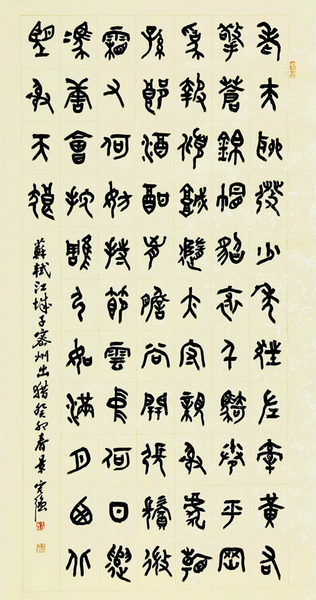 老夫聊發少年狂左牽黃右
擎蒼錦帽貂裘千騎卷平岡
為報傾城隨太守親射虎看
孫郎酒酣胸膽尚開張鬢微
霜又何妨持節雲中何日遣
馮唐會挽雕弓如滿月西北
望射天狼
蘇軾江城子密州出獵癸卯春